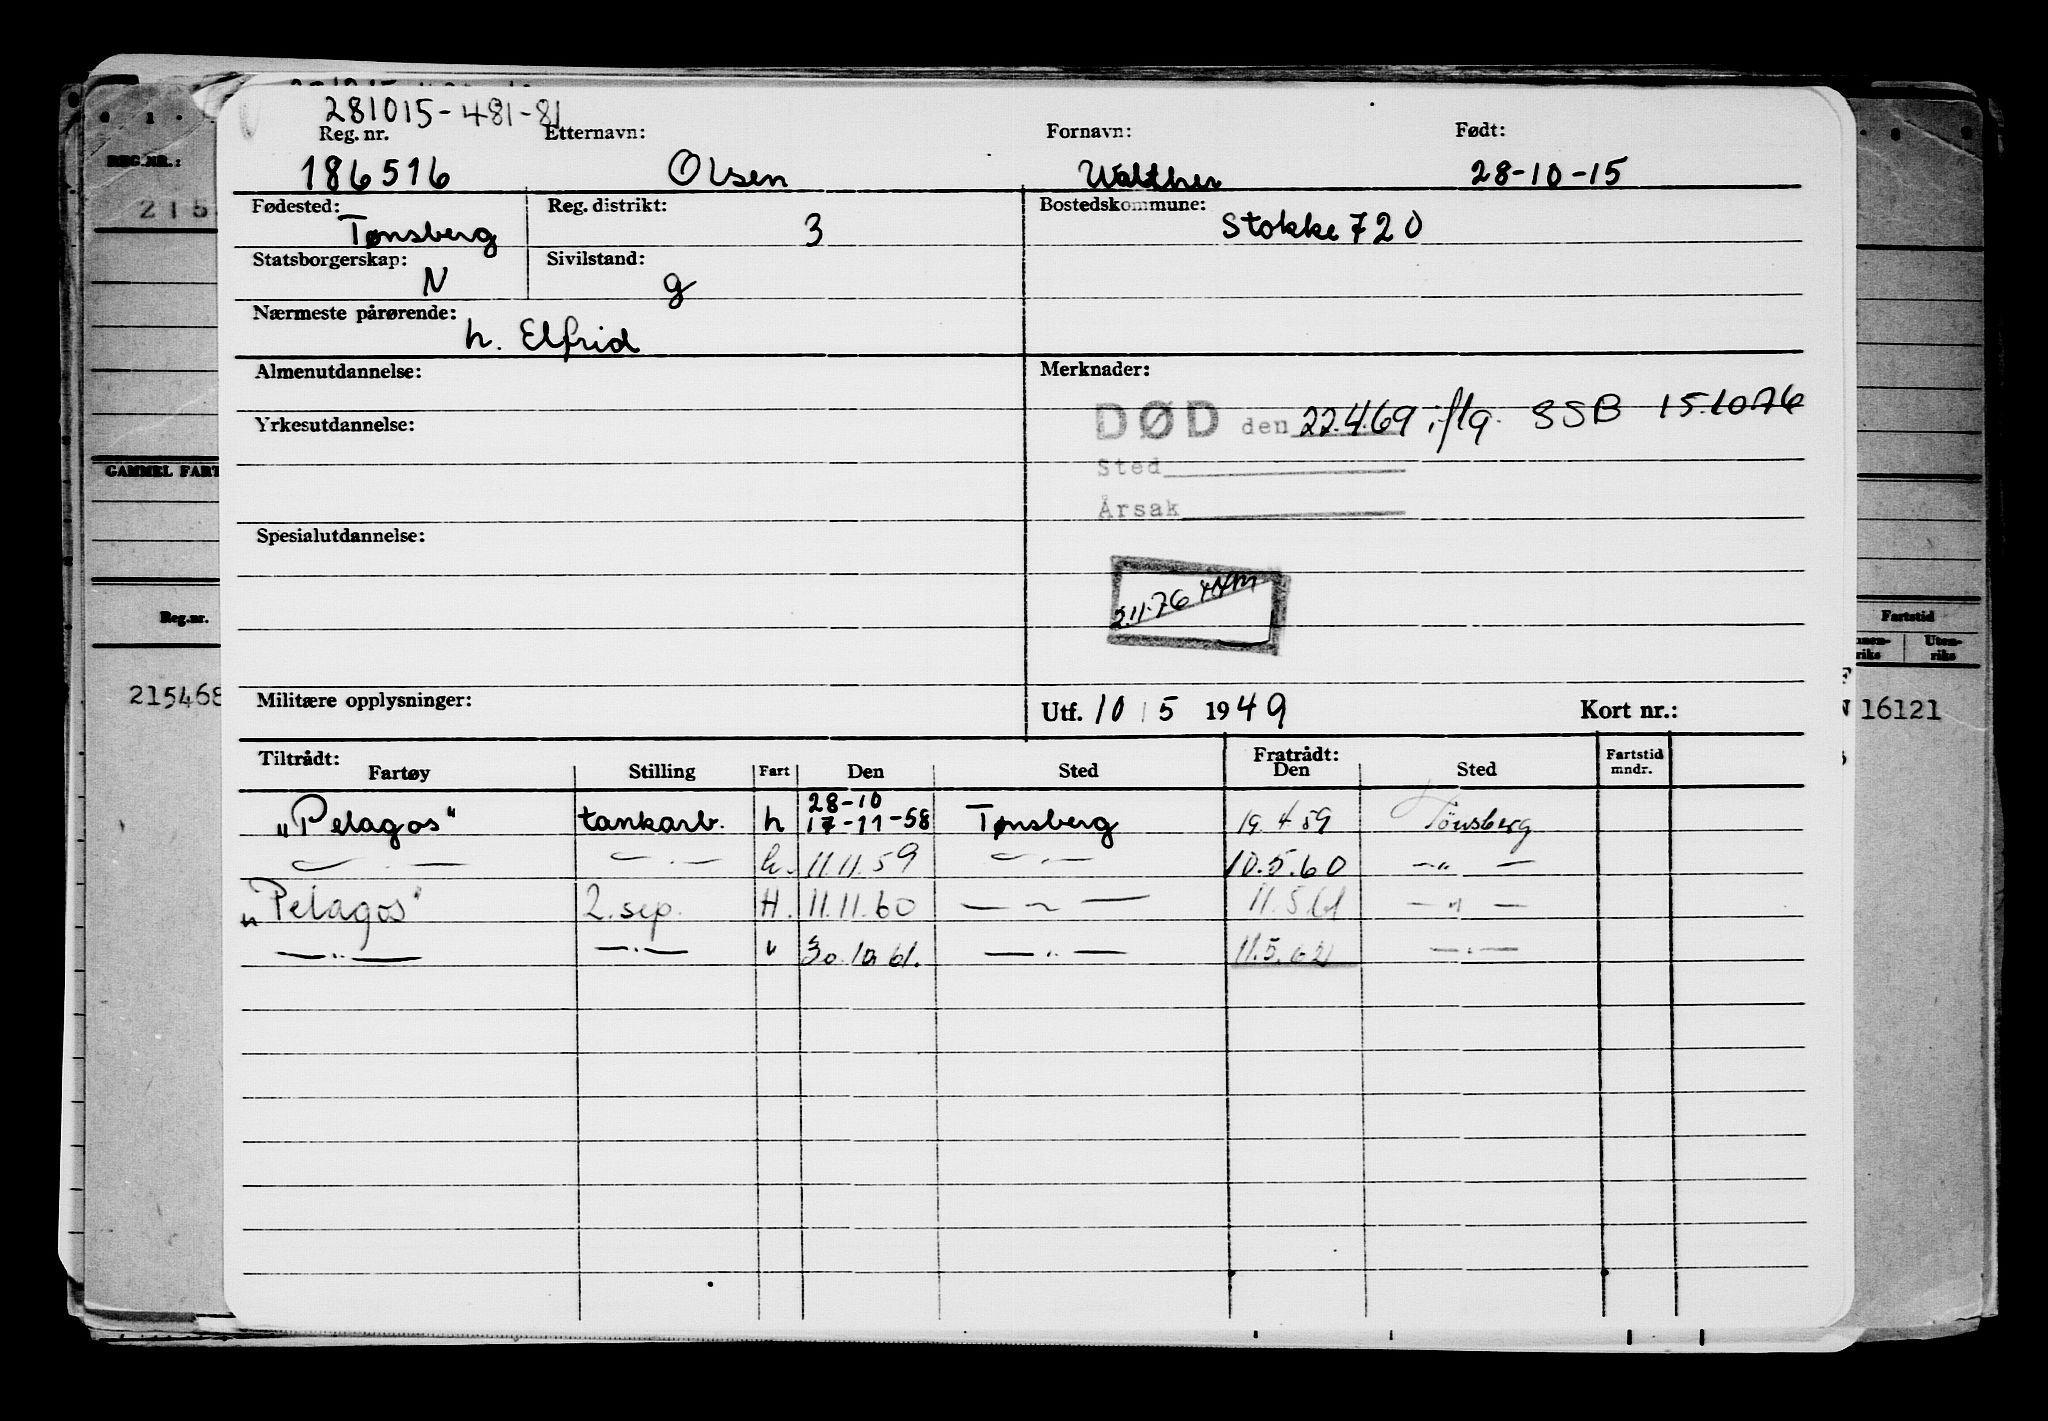 281015-481-81
Reg. nr. Etternavn: Fornavn: Født:
186516 Olsen Walther 28-10-15
Fødested: Tønsberg Reg. distrikt: 3 Bostedskommune: Stokke 720
Statsborgerskap: N Sivilstand: g
Nærmeste pårørende: h. Elfrid
Almenutdannelse: Merknader:
DØD den 22.4.69 iflg. SSB 15.10.76
Yrkesutdannelse:
Sted
Årsak
Spesialutdannelse:
2.11.76
Militære opplysninger: Utf. 10 5 1949 Kort nr.:
Tiltrådt: Fratrådt: Fartstid
Fartøy Stilling Fart Den Sted Den Sted mndr.
28-10
„Pelagos" tankarb. h 17-11-58 Tønsberg 19.4.59 Tönsberg
— " — — " — h. 11.11.59 — " — 10.5.60 — " —
„Pelagos" 2. sep. H. 11.11.60 — " — 11.5.61 — " —
— " — — " — " 30.10.61. — " — 11.5.62 — " —
REG.NR.:
215
GAMMEL FART
Reg.nr.
215468
Fartstid
Uten-
riks
16121